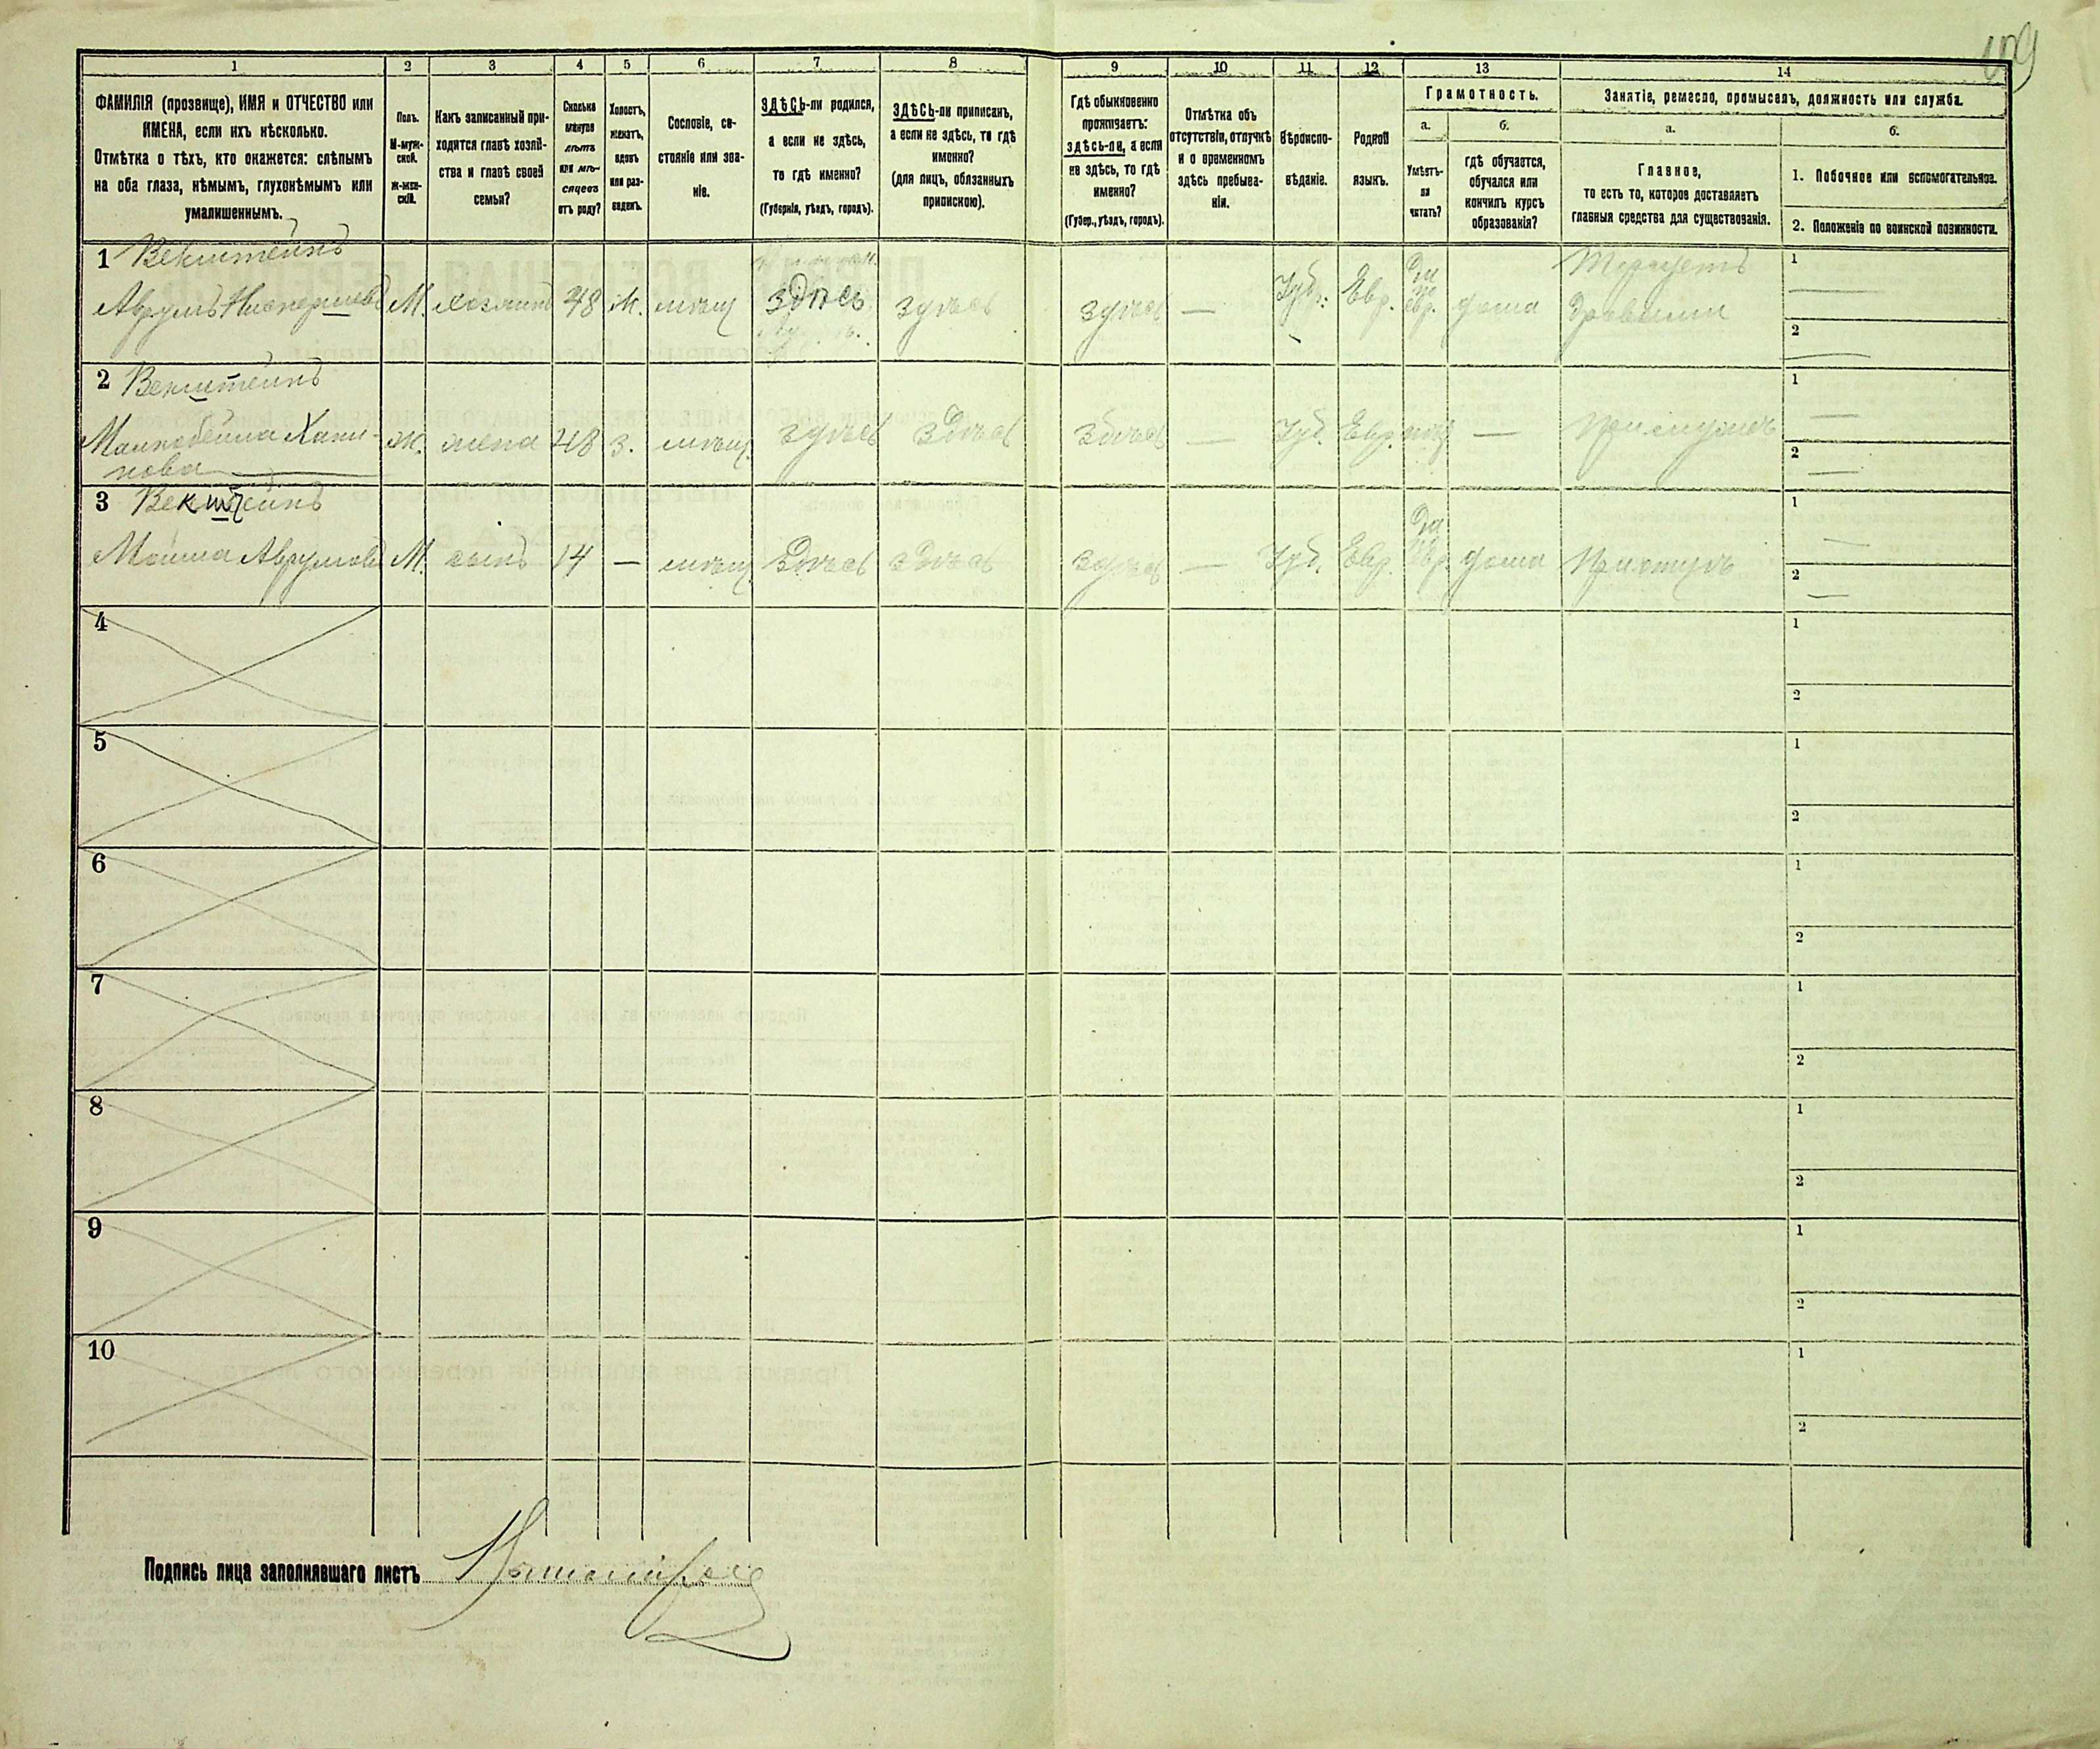 109
1 2 3 4 5 6 7 8 9 10 11 12 13 14
ФАМИЛІЯ (прозвище), ИМЯ и ОТЧЕСТВО или
ИМЕНА, если ихъ нѣсколько.
Отмѣтка о тѣхъ, кто окажется: слѣпымъ
на оба глаза, нѣмымъ, глухонѣмымъ или
умалишеннымъ.
Полъ.
М-муж-
ской.
Ж-жен-
скій.
Какъ записанный при-
ходится главѣ хозяй-
ства и главѣ своей
семьи?
Сколько
минуло
лѣтъ
или мѣ-
сяцевъ
отъ роду?
Холостъ,
женатъ,
вдовъ
или раз-
веденъ.
Сословіе, со-
стояніе или зва-
ніе.
ЗДѢСЬ-ли родился,
а если не здѣсь,
то гдѣ именно?
(Губернія, уѣздъ, городъ).
ЗДѢСЬ-ли приписанъ,
а если не здѣсь, то гдѣ
именно?
(для лицъ, обязанныхъ
припискою).
Гдѣ обыкновенно
проживаетъ:
здѣсь-ли, а если
не здѣсь, то гдѣ
именно?
(Губер., уѣздъ, городъ).
Отмѣтка объ
отсутствіи, отлучкѣ
и о временномъ
здѣсь пребыва-
ніи.
Вѣроиспо-
вѣданіе.
Родной
языкъ.
Грамотность.
а.
Умѣетъ-
ли
читать?
б.
гдѣ обучается,
обучался или
кончилъ курсъ
образованія?
Занятіе, ремесло, промыселъ, должность или служба.
а.
Главное,
то есть то, которое доставляетъ
главныя средства для существованія.
б.
1. Побочное или вспомогательное.
2. Положеніе по воинской повинности.
1 Векштейнъ
Аврумъ М. хозяинъ 48 ж. мѣщ здѣсь здѣсь здѣсь — Іуд. Евр. Да евр. дома Торгуетъ
дровами
1 —
2 —
2 Векштейнъ
Ж. жена 48 з. мѣщ. здѣсь здѣсь здѣсь — Іуд. Евр. нѣт — При мужѣ
1 —
2 —
3 Векштейнъ
Мошка Аврумовъ М. сынъ 14 — мѣщ здѣсь здѣсь здѣсь — Іуд. Евр. Да Евр. дома При отцѣ
1 —
2 —
4 1
2
5 1
2
6 1
2
7 1
2
8 1
2
9 1
2
10 1
2
Подпись лица заполнявшаго листъ